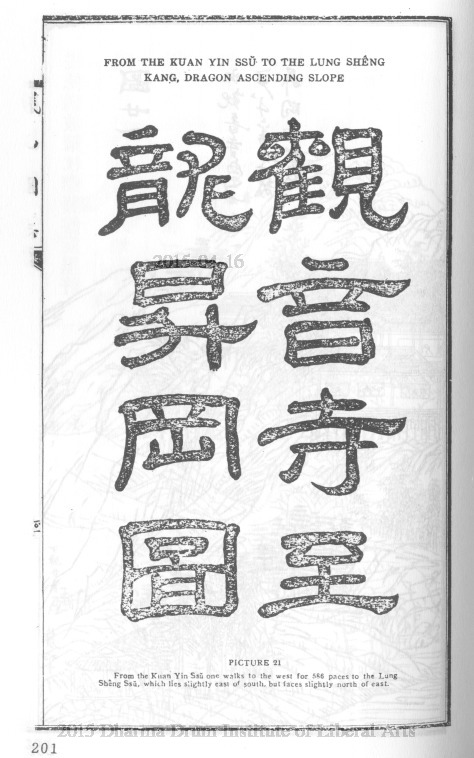 FROM THE KUAN YIN SSŬ TO THE LUNG SHÊNG
KANG, DRAGON ASCENDING SLOPE
觀音寺至
龍昇岡圖
2015-04-16
PICTURE 21
From the Kuan Yin Ssŭ one walks to the west for 586 paces to the Lung
Shêng Ssŭ, which lies slightly east of south, but faces slightly north of east.
2015 Dharma Drum Institute of Liberal Arts
201